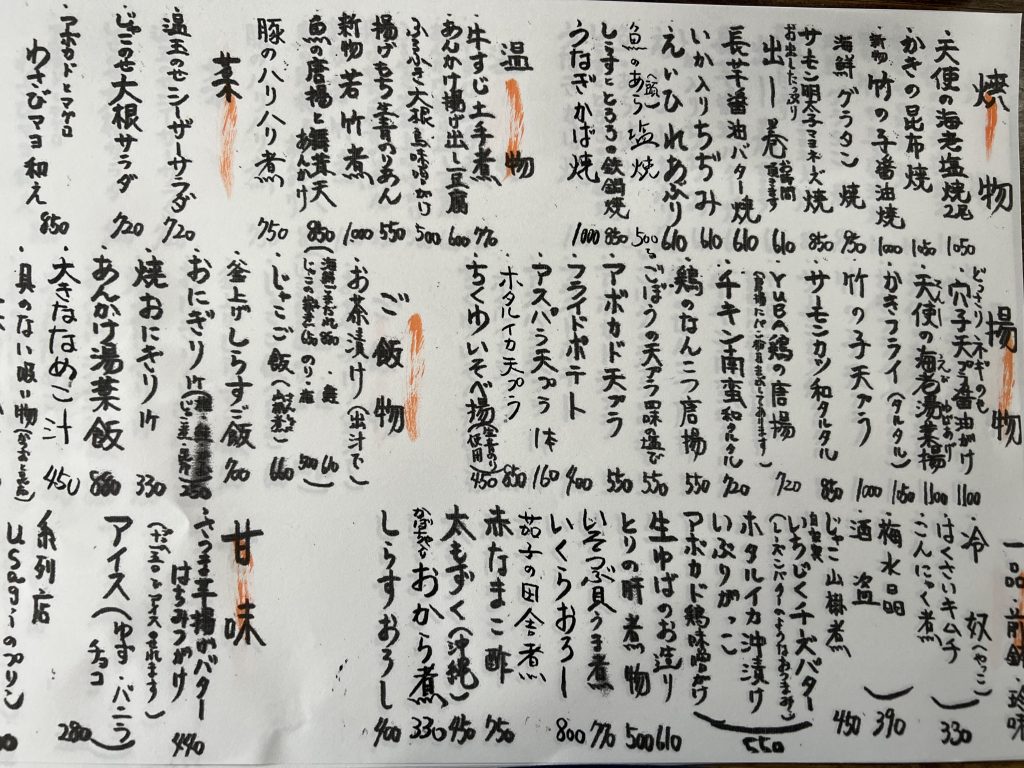 焼物
・天使の海老塩焼 2尾 1050
・かきの昆布焼 1050
・新物 竹の子醤油焼 1000
・海鮮グラタン焼 950
・サーモン明太子マヨネーズ焼 850
・お出したっぷり 出し巻 お時間頂きます 610
・長芋醤油バター焼 610
・いか入りちぢみ 610
・えいひれあぶり 610
・魚のあら(頭)塩焼 500
・しらすことろろの鉄鍋焼 850
・うなぎかば焼 1000
温物
・牛すじ土手煮 770
・あんかけ揚げ出し豆腐 600
・ふろふき大根 鳥味噌かけ 500
・揚げもち 生青のりあん 550
・新物 若竹煮 1000
・魚の唐揚と舞茸天あんかけ 850
・豚のハリハリ煮 750
菜
・温玉のせシーザーサラダ 720
・じゃこのせ大根サラダ 720
・アボカドとマグロ
わさびマヨ和え 850
揚物
・どっさりネギのせ
穴子天プラ醤油がけ 1100
・天使の海老湯葉揚 1100
・かきフライ(タルタル) 1050
・竹の子天プラ 1000
・サーモンカツ和タルタル 850
・YUBA鶏の唐揚 720
・チキン南蛮 和タルタル 720
・鶏のなんこつ唐揚 550
・ごぼうの天プラ 一味塩で 550
・アボカド天プラ 550
・フライドポテト 400
・アスパラ天プラ 1本 160
・ホタルイカ天プラ 850
・ちくわいそべ揚 450
ご飯物
・お茶漬け(出汁で)
・じゃこご飯 660
・釜上げしらすご飯 700
・おにぎり 1ケ 250
・焼おにぎり 1ケ 330
・あんかけ湯葉飯 880
・大きななめこ汁 450
・具のない吸い物
一品・前菜・珍味
・冷奴(ヤッコ)
・はくさいキムチ
・こんにゃく煮 330
・梅水晶
・酒盗 390
・自家製 じゃこ山椒煮 450
・いちじくチーズバター
(レーズンバターのようなおつまみ)
・ホタルイカ沖漬け
・いぶりがっこ
・アボカド鶏味噌がけ 550
・生ゆばのお造り 610
・とりの肝煮物 500
・いそつぶ貝うま煮 770
・いくらおろし 800
・茄子の田舎煮
・赤なまこ酢 750
・太もずく(沖縄) 450
・かぼちゃおから煮 330
・しらすおろし 400
甘味
・さつま芋揚げバター
はちみつがけ 440
・アイス(ゆず・バニラ
チョコ) 280
系列店
usagiのプリン